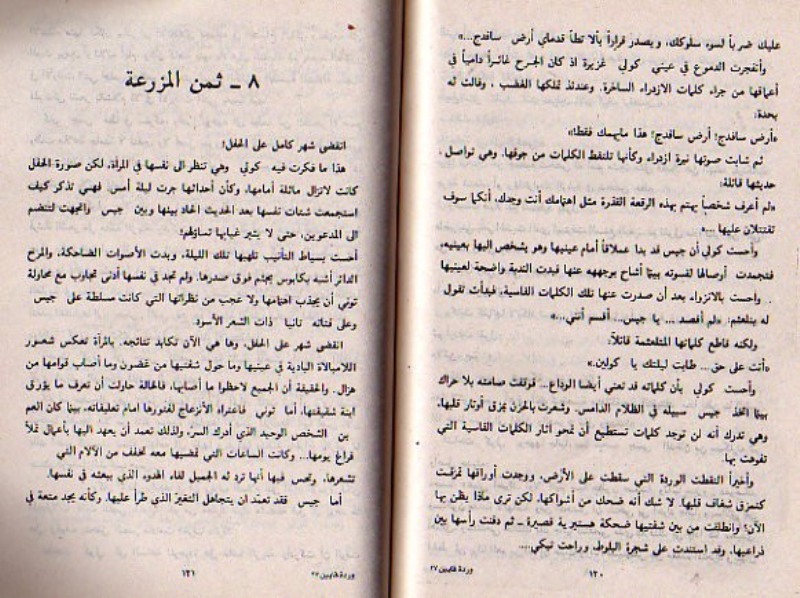 عليك ضرباً لسوء سلوكك، ويصدر قراراً بألا تطأ قدماي أرض سافدج...»
وأنفجرت الدموع في عيني كولي غزيرة اذ كان الجرح غائراً دامياً في
أعماقها من جراء كلمات الازدراء الساخرة. وعندئذ تملكها الغضب، وقالت له
بحدة:
«أرض سافدج! أرض سافدج! هذا مايهمك فقط!»
ثم شابت صوتها نبرة ازدراء وكأنها تلتقط الكلمات من جوفها. وهي تواصل
حديثها قائلة:
«لم أعرف شخصاً يهتم بهذه الرقعة القذرة مثل اهتمامك أنت وجدك. أنكما سوف
تقتتلان عليها ...»
وأحست كولي أن جيس قد بدا عملاقاً أمام عينيها وهو يشخص اليها بعينيه،
فتجمدت أوصالها لقسوته بينما أشاح بوجهه عنها فبدت الندبة واضحة لعينيها
. واحست بالانزواء بعد أن صدرت عنها تلك الكلمات القاسية، فبدأت تقول
له بتلعثم: «لم أقصد ... يا جيس... أقسم أنني...»
ولكنه قاطع كلماتها المتلعثمة قائلاً:
«أنت على حق... طابت ليلتك يا كولين.»
وأحست كولي بأن كلماته قد تعني أيضا الوداع... فوقفت صامتة بلا حراك
بينما اتخذ جيس سبيله في الظلام الدامس. وشعرت بالحزن يمزق أوتار قلبها،
وهي تدرك أنه لن توجد كلمات تستطيع أن تمحو آثار الكلمات القاسية التي
تفوهت بها.
وأخيراً التقطت الوردة التي سقطت على الأرض، ووجدت أوراقها تمزقت
كتمزق شغاف قلبها. لا شك أنه ضحك من أشواكها. لكن ترى ماذا يظن بها
الآن؟ وانطلقت من بين شفتيها ضحكة هستيرية قصيرة ـ ثم دفنت رأسها بين
ذراعيها، وقد استندت على شجرة البلوط، وراحت تبكي....
١٢٠
وردة قايين ٢٧
٨ ـ ثمن المزرعة
انقضى شهر كامل على الحفل!
هذا ما فكرت فيه كولي وهي تنظر الى نفسها في المرآة، لكن صورة الحفل
كانت لاتزال ماثلة أمامها، وكأن أحداثها جرت ليلة أمس. فهي تذكر كيف
استجمعت شتات نفسها بعد الحديث الحاد بينها وبين جيس واتجهت لتنضم
الى المدعوين، حتى لا يثير غيابها تساؤلهم!
أحست بسياط التأنيب تلهبها تلك الليلة، وبدت الأصوات الضاحكة، والمرح
الدائر أشبه بكابوس يجثم فوق صدرها. ولم تجد في نفسها أدنى تجاوب مع محاولة
توني أن يجذب اهتمامها ولا عجب من نظراتها التي كانت مسلطة على جيس
وعلى فتاته تانيا ذات الشعر الأسود.
انقضى شهر على الحفل، وها هي الآن تكابد نتائجه. بالمرآة تعكس شعور
اللامبالاة البادية في عينيها وما حول شفتيها من غضون وما أصاب قوامها من
هزال. والحقيقة أن الجميع لاحظوا ما أصابها، فالخالة حاولت أن تعرف ما يؤرق
ابنة شقيقتها، أما توني فاعتراه الأنزعاج لفتورها امام تعليقاته، بينما كان العم
بن الشخص الوحيد الذي أدرك السر، ولذلك تعمد أن يعهد اليها بأعمال تملأ
فراغ يومها... وكانت الساعات التي تمضيها معه تخفف من الآلام التي
تشعرها، وتحس فيها أنها ترد له الجميل لقاء الهدوء الذي يبعثه في نفسها.
أما جيس فقد تعمد ان يتجاهل التغير الذي طرأ عليها. وكأنه يجد متعة في
١٢١
وردة قايين ٢٧